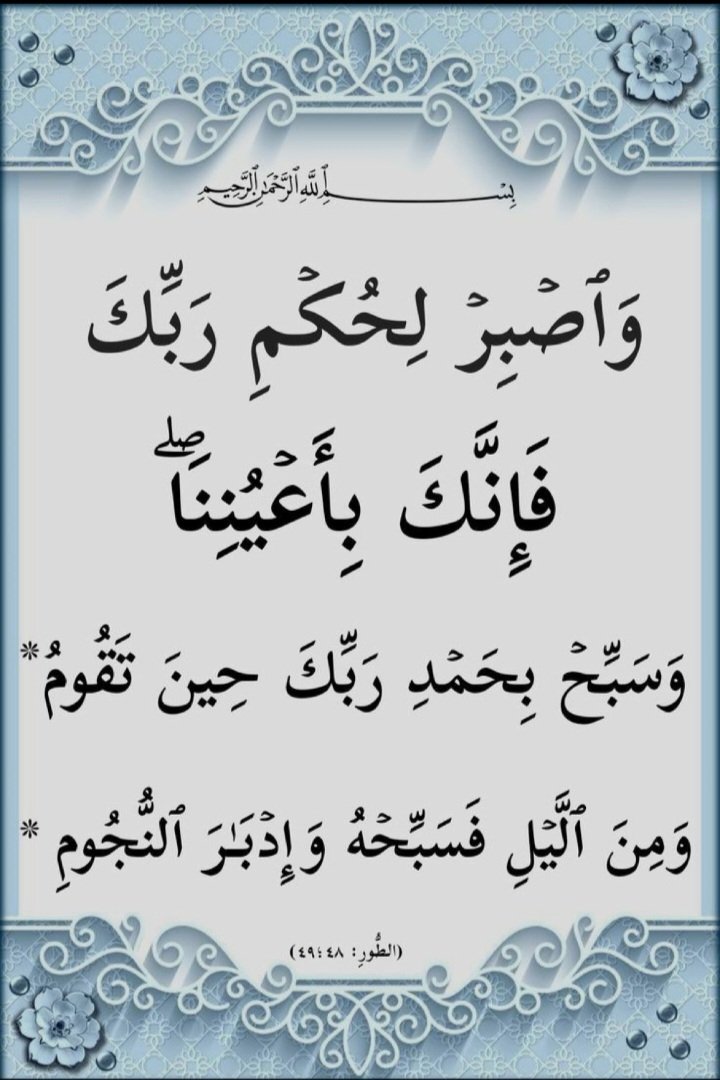 بِسْمِ ٱللَّهِ ٱلرَّحْمَٰنِ ٱلرَّحِيمِ
وَٱصۡبِرۡ لِحُكۡمِ رَبِّكَ
فَإِنَّكَ بِأَعۡيُنِنَاۖ
وَسَبِّحۡ بِحَمۡدِ رَبِّكَ حِينَ تَقُومُ *
وَمِنَ ٱلَّيۡلِ فَسَبِّحۡهُ وَإِدۡبَٰرَ ٱلنُّجُومِ *
(الطُّورِ: ٤٨؛٤٩)